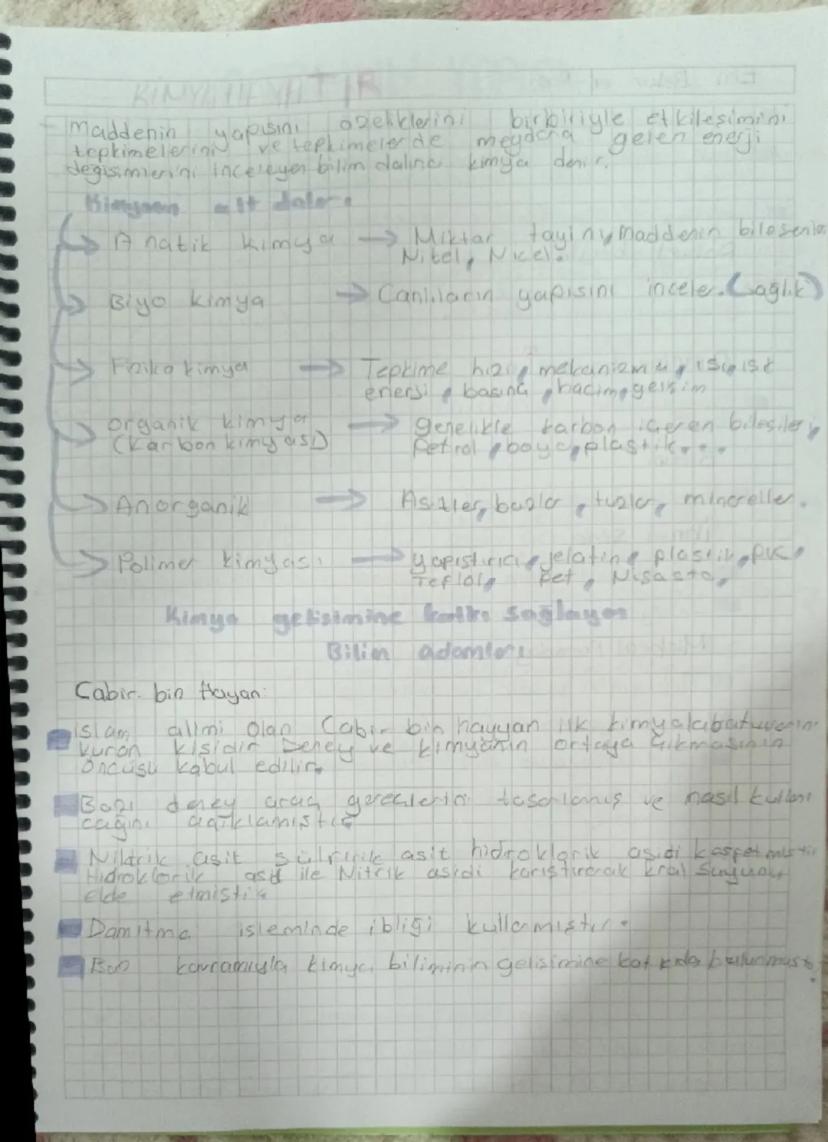 KİMYA
Maddenin yapısını özeliklerini birbiriyle etkilesimini
tepkimelerini ve tepkimelerde meydana gelen enerji
degisimlerini inceleyen bilim dalına kimya denir.
Kimyanın alt dalları
Analitik kimya → Miktar tayini, maddenin bilesenle
Nitel, Nicel.
Biyo kimya → Canlıların yapısını inceler. (saglık)
Fiziko kimya → Tepkime hızı, mekanizma, ısı, is
enersi, basınç, hacim, gelisim
organik kimya → genelikle karbon iceren bilesiler,
(Karbon kimyası) Petrol, boya, plastik...
Anorganik → Asitler, bazlar, tuzlar, mineraller.
Polimer kimyası → yapıstırıcı, jelatin, plastik, PVC,
Teflol, Pet, Nisasta,
Kimya gelisimine katkı saglayan
Bilim adamları
Cabir bin Hayan:
islam alimi olan Cabir bin hayyan ilk kimya labatuvarını
kuran kisidir Deney ve kimyanın ortaya cıkmasının
öncüsü kabul edilir.
Bazı deney araç gereclerini tasarlamıs ve nasıl kullanı
cagını acıklamıstır
Niktrik asit sülfirik asit hidroklorik asidi kesfetmistir
Hidroklorik asit ile Nitrik asidi karıstırarak kral suyunu
elde etmistir
Damıtma isleminde ibligi kullamıstır.
Baz kavramıyla kimya biliminin gelisimine katkıda bulunmust.